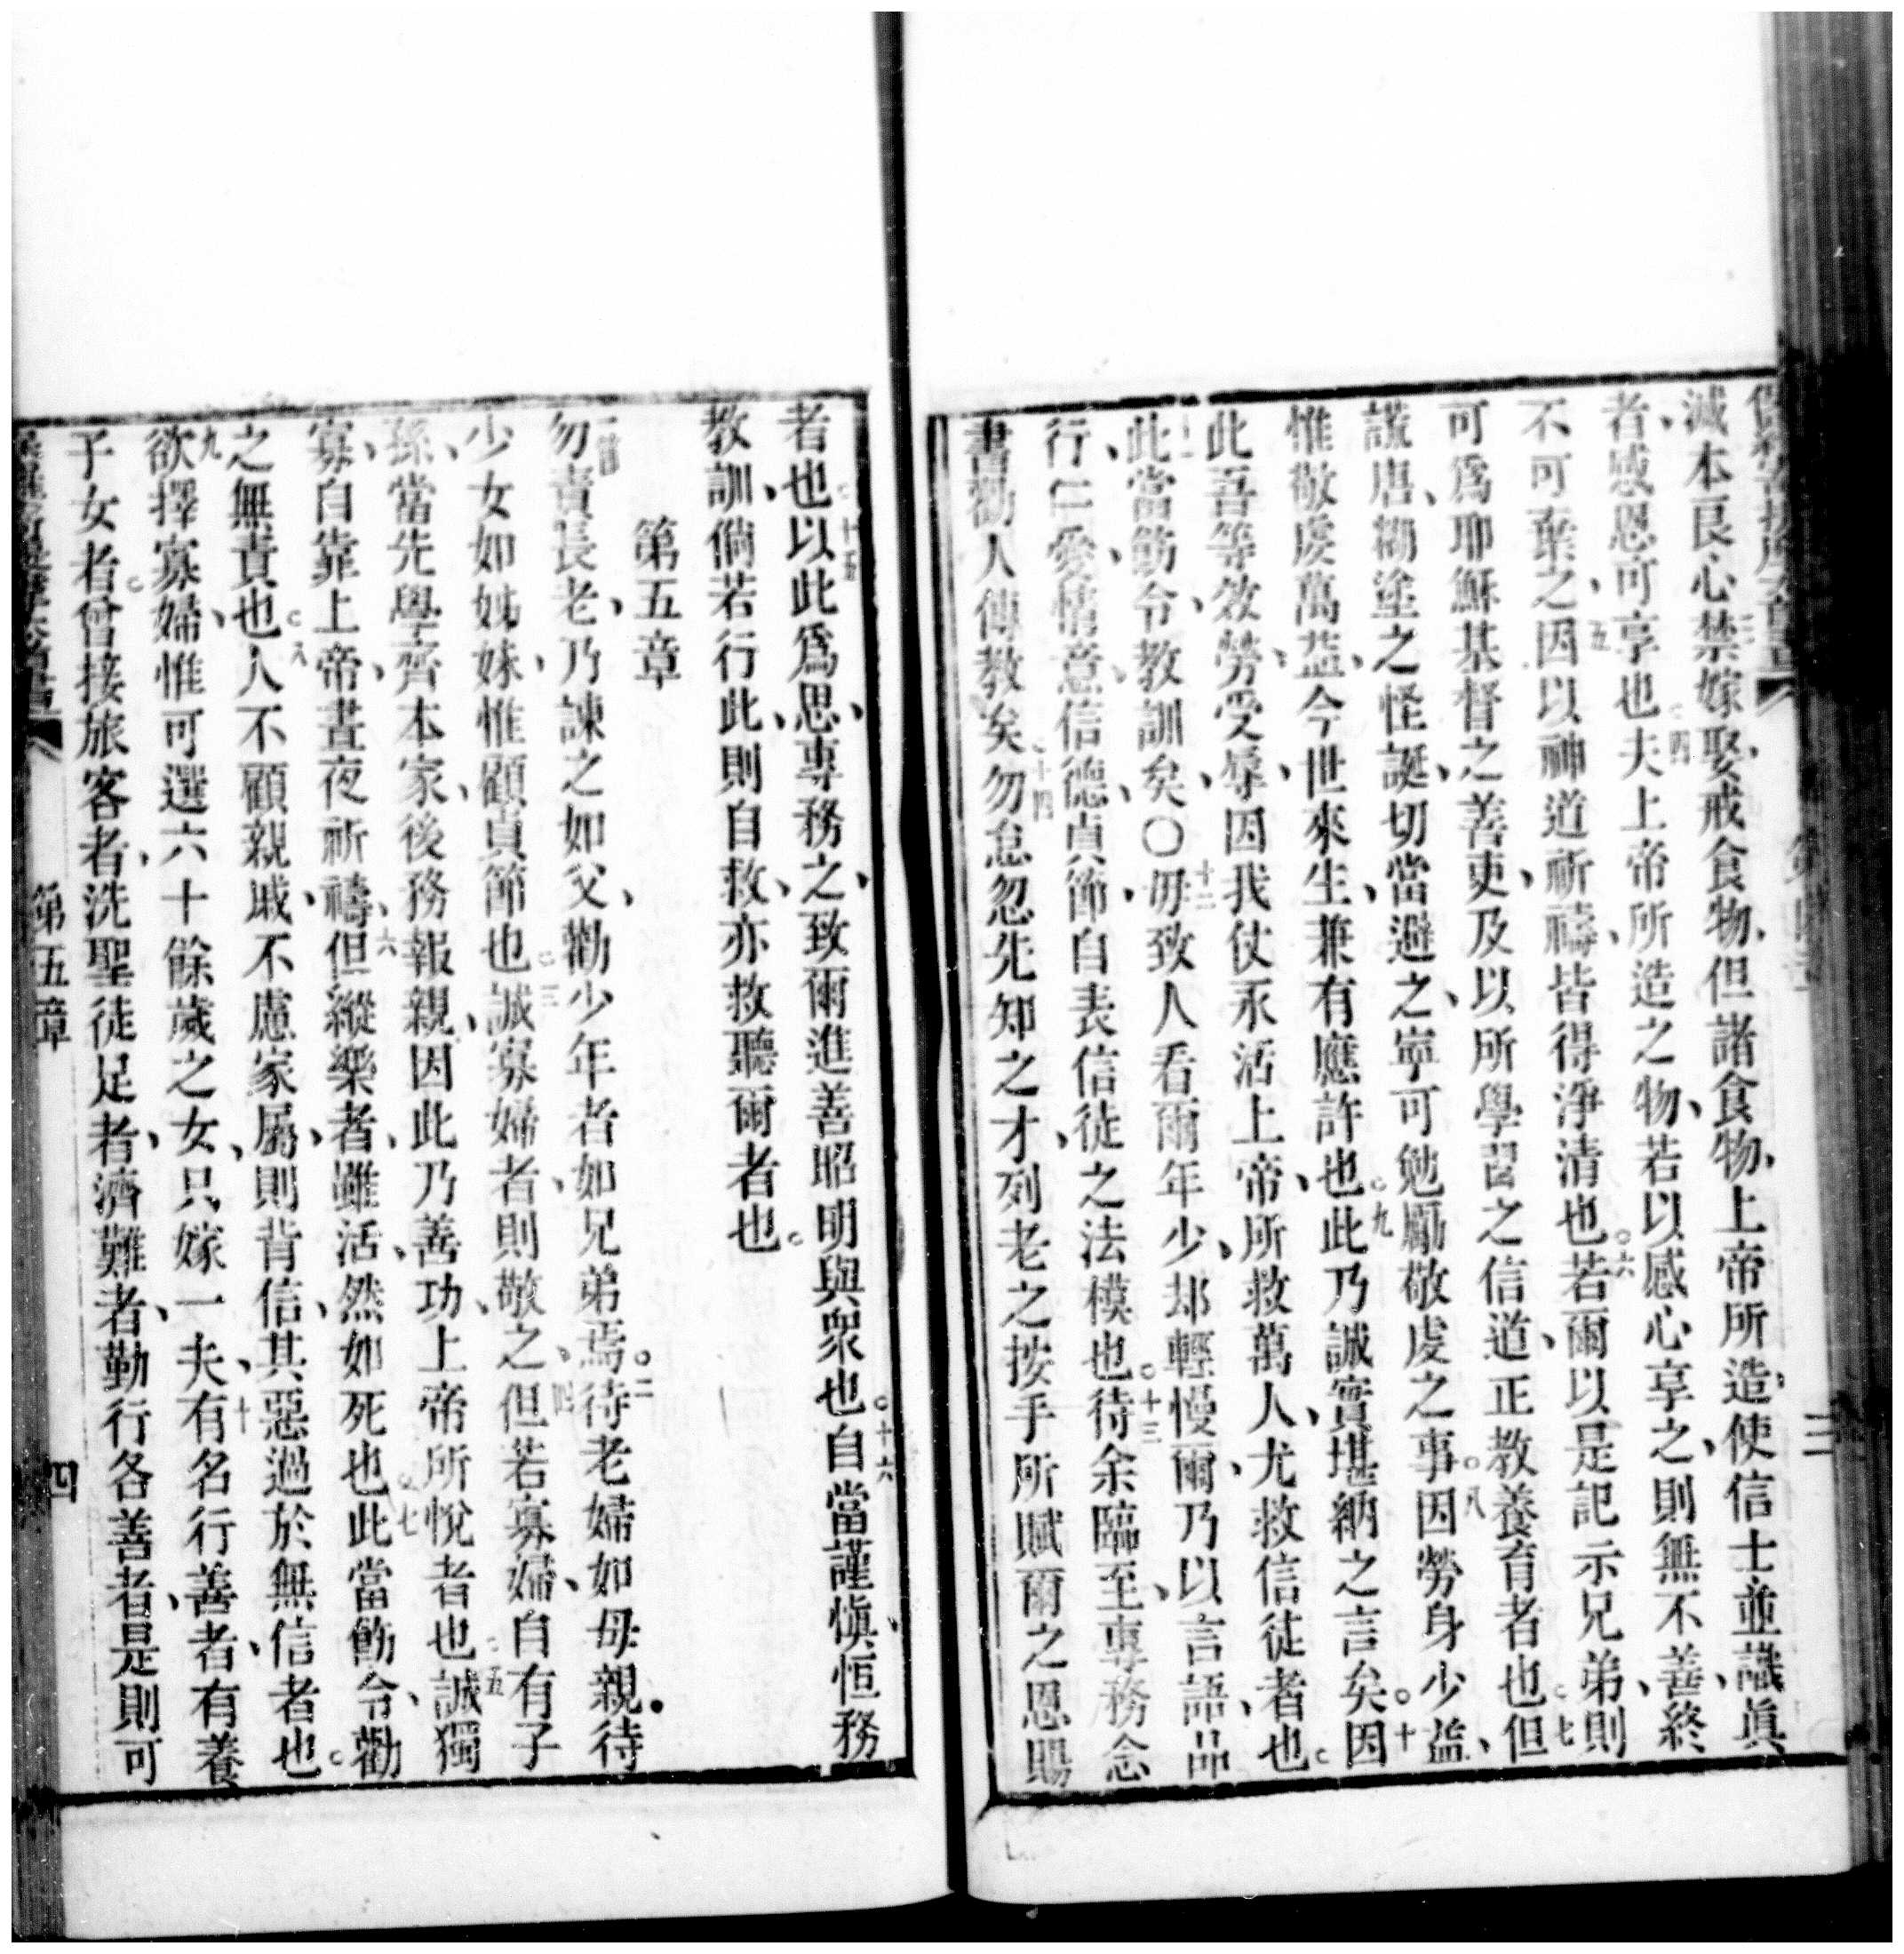 滅本良心、三禁嫁娶、戒食物、但諸食物、上帝所造、使信士並識眞
者、感恩可享也。四夫上帝所造之物、若以感心享之、則無不善、終
不可棄之、五因以神道祈禱、皆得淨清也。六若爾以是記示兄弟、則
可爲耶穌基督之善吏、及以所學習之信道、正教養育者也。七但
謊唐、糊塗之怪誕、切當避之、寧可勉勵敬虔之事。八因勞身少益、
惟敬虔萬益、今世來生、兼有應許也。九此乃誠實堪納之言矣。十因
此吾等效勞、受辱、因我仗永活上帝、所救萬人、尤救信徒者也。
十一此當飭令、教訓矣、〇十二毋致人看爾年少、却輕慢爾、乃以言語、品
行、仁愛、情意、信德、貞節、自表信徒之法模也。十三待余臨至、專務念
書勸人傳教矣。十四勿怠忽先知之才、列老之按手所賦爾之恩賜
者也。十五以此爲思、專務之、致爾進善昭明與衆也。十六自當謹愼、恒務
教訓、倘若行此、則自救、亦救聽爾者也。
第五章
一節勿責長老、乃諫之如父、勸少年者如兄弟焉。二待老婦如母親．待
少女如姊妹、惟顧貞節也。三誠寡婦者、則敬之、四但若寡婦、自有子
孫、當先學齊本家、後務報親、因此乃善功、上帝所悅者也。五誠獨
寡、自靠上帝、晝夜祈禱、六但縱樂者、雖活、然如死也。七此當飭令、勸
之無責也。八人不顧親戚、不慮家屬、則背信、其惡過於無信者也。
九欲擇寡婦、惟可選六十餘歲之女、只嫁一夫、十有名行善者、有養
子女者。曾接旅客者、洗聖徒足者、濟難者、勤行各善者、是則可
第五章
四
三